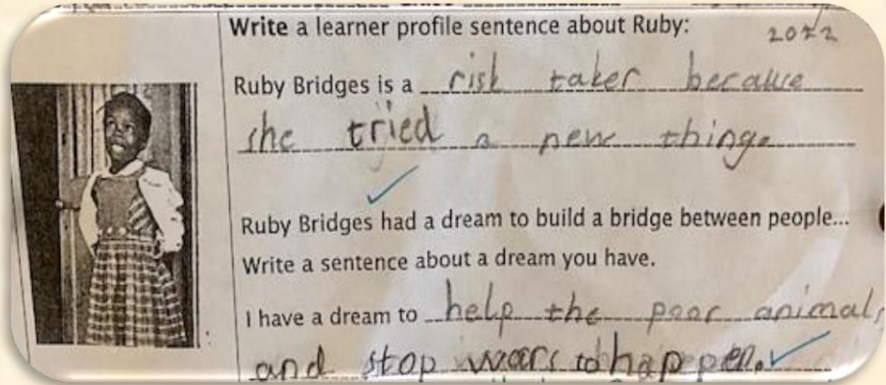 Write a learner profile sentence about Ruby:
2022
Ruby Bridges is a risk taker because
she tried a new thing.
Ruby Bridges had a dream to build a bridge between people...
Write a sentence about a dream you have.
I have a dream to help the poor animals
and stop wars to happen.